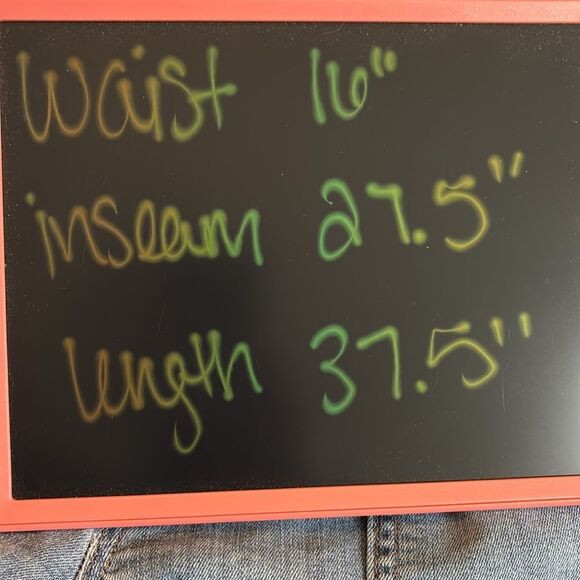 Waist 16"
inseam 27.5"
length 37.5"